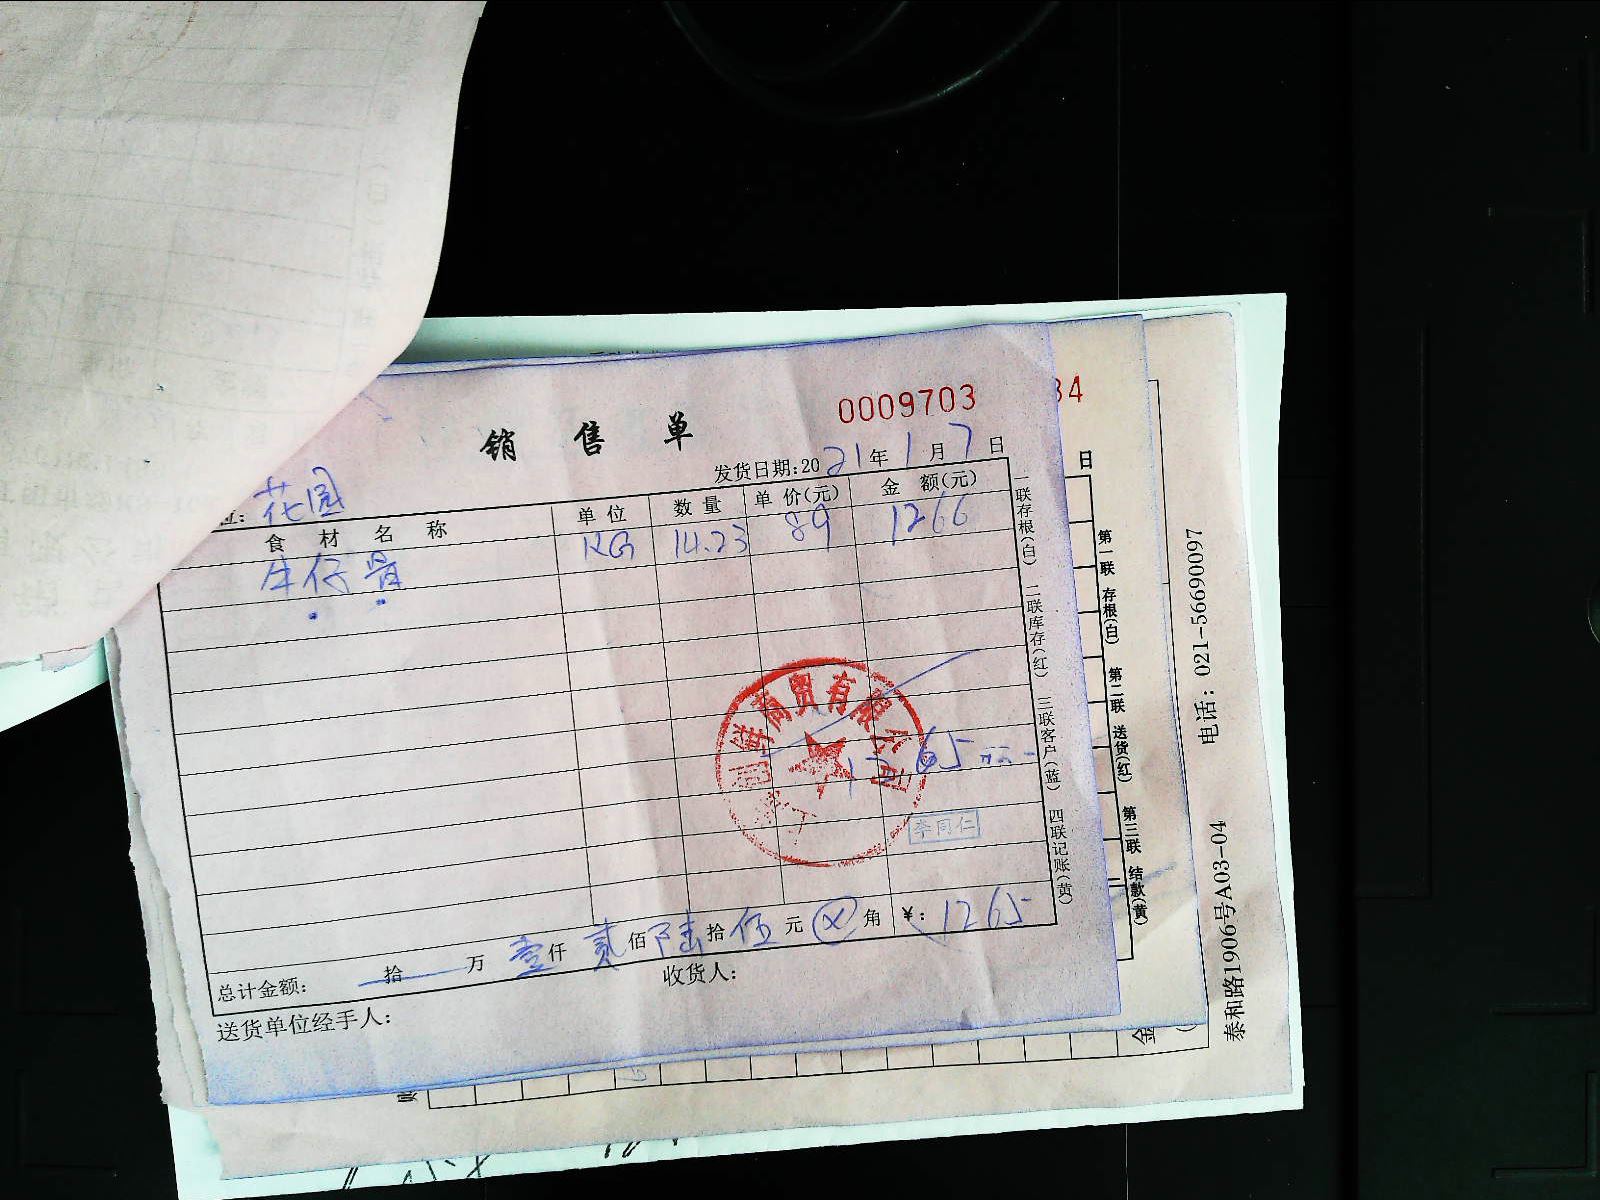 销售单
0009703
34
发货日期:2021年1月7日
日
位: 花园
食材名称 单位 数量 单价(元) 金额(元)
牛仔骨 KG 14.23 89 1266
商贸有限公司
65元
李同仁
总计金额: 拾 万 壹仟 贰佰 陆拾 伍元 ⊗角 ¥: 1265
送货单位经手人: 收货人:
一联存根(白) 二联库存(红) 三联客户(蓝) 四联记账(黄)
第一联 存根(白) 第二联 送货(红) 第三联 结款(黄)
金
泰和路1906号A03-04 电话: 021-56690097